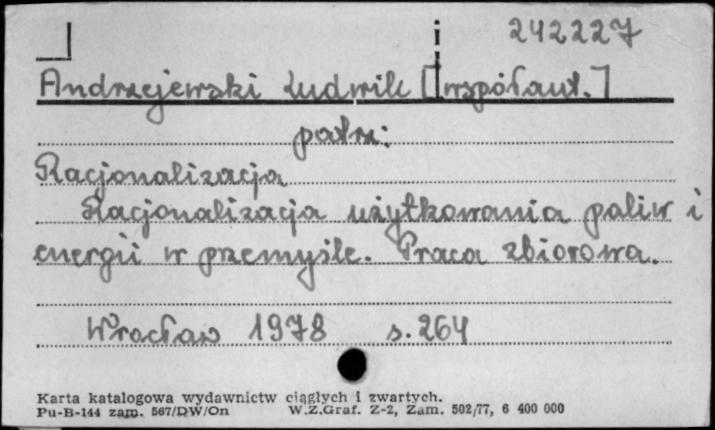 242227
Andrzejewski Ludwik [współaut.]
patrz:
Racjonalizacja
Racjonalizacja użytkowania paliw i
energii w przemyśle. Praca zbiorowa.
Wrocław 1978 s. 264
Karta katalogowa wydawnictw ciągłych i zwartych.
Pu-B-144 zam. 567/DW/On W.Z.Graf. Z-2, Zam. 502/77, 6 400 000